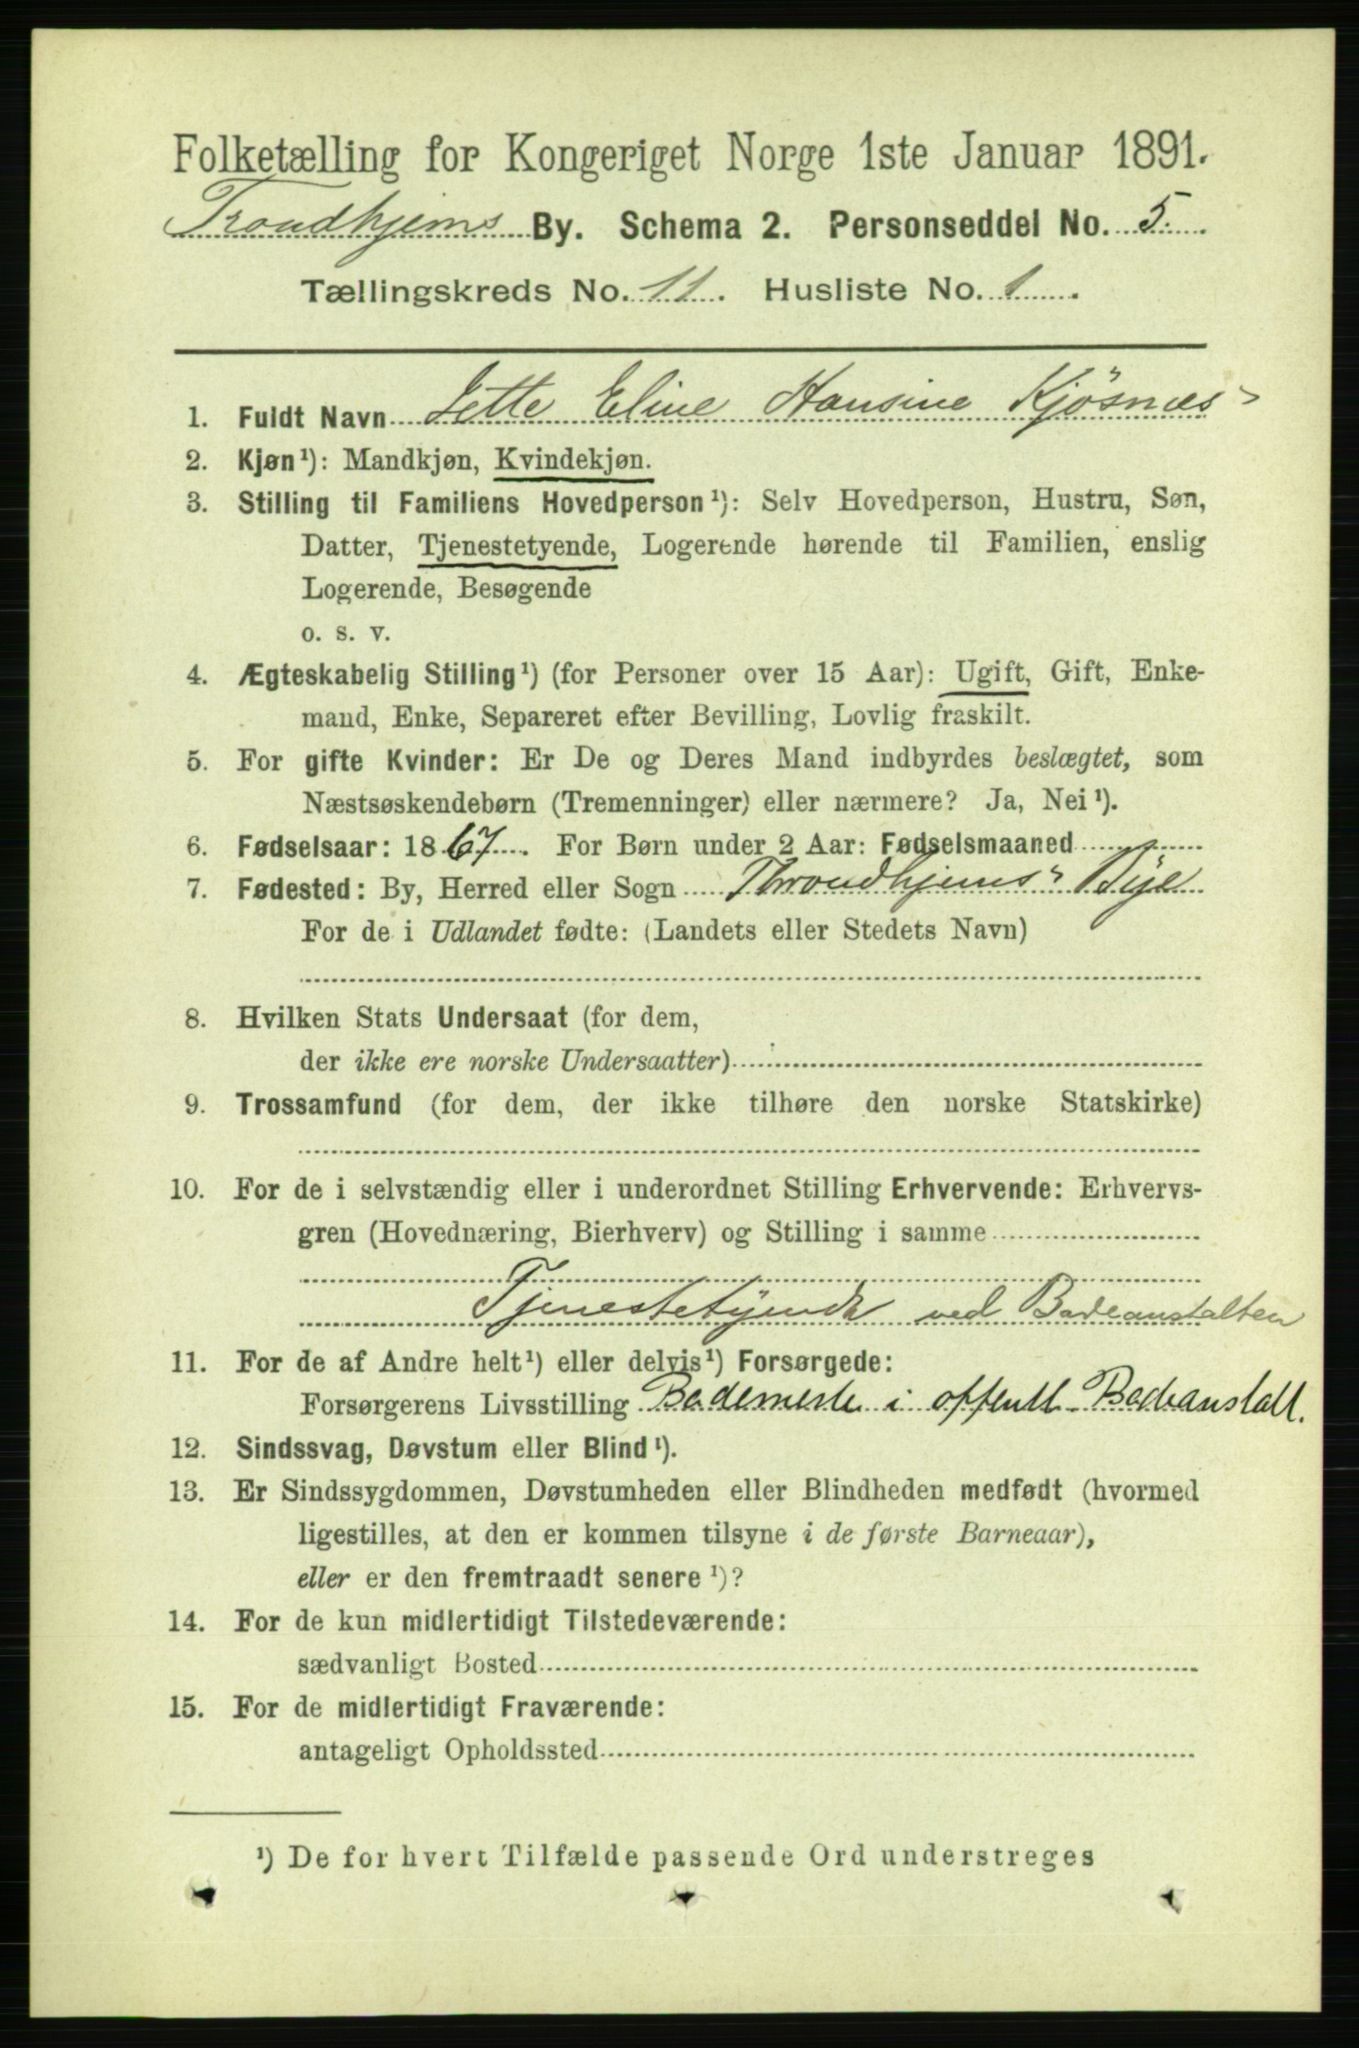 Folketælling for Kongeriget Norge 1ste Januar 1891.
Trondhjems By. Schema 2. Personseddel No. 5.
Tællingskreds No. 11. Husliste No. 1.
1. Fuldt Navn Jette Eline Hansine Kjösnæs
2. Kjøn¹): Mandkjøn, Kvindekjøn.
3. Stilling til Familiens Hovedperson¹): Selv Hovedperson, Hustru, Søn,
Datter, Tjenestetyende, Logerende hørende til Familien, enslig
Logerende, Besøgende
o. s. v.
4. Ægteskabelig Stilling¹) (for Personer over 15 Aar): Ugift, Gift, Enke-
mand, Enke, Separeret efter Bevilling, Lovlig fraskilt.
5. For gifte Kvinder: Er De og Deres Mand indbyrdes beslægtet, som
Næstsøskendebørn (Tremenninger) eller nærmere? Ja, Nei¹).
6. Fødselsaar: 1867. For Børn under 2 Aar: Fødselsmaaned
7. Fødested: By, Herred eller Sogn Throndhjems Bye
For de i Udlandet fødte: (Landets eller Stedets Navn)
8. Hvilken Stats Undersaat (for dem,
der ikke ere norske Undersaatter)
9. Trossamfund (for dem, der ikke tilhøre den norske Statskirke)
10. For de i selvstændig eller i underordnet Stilling Erhvervende: Erhvervs-
gren (Hovednæring, Bierhverv) og Stilling i samme
Tjenestetyende ved Badeanstalten
11. For de af Andre helt¹) eller delvis¹) Forsørgede:
Forsørgerens Livsstilling Bademester i offentl. Badeanstalt.
12. Sindssvag, Døvstum eller Blind¹).
13. Er Sindssygdommen, Døvstumheden eller Blindheden medfødt (hvormed
ligestilles, at den er kommen tilsyne i de første Barneaar),
eller er den fremtraadt senere¹)?
14. For de kun midlertidigt Tilstedeværende:
sædvanligt Bosted
15. For de midlertidigt Fraværende:
antageligt Opholdssted
¹) De for hvert Tilfælde passende Ord understreges